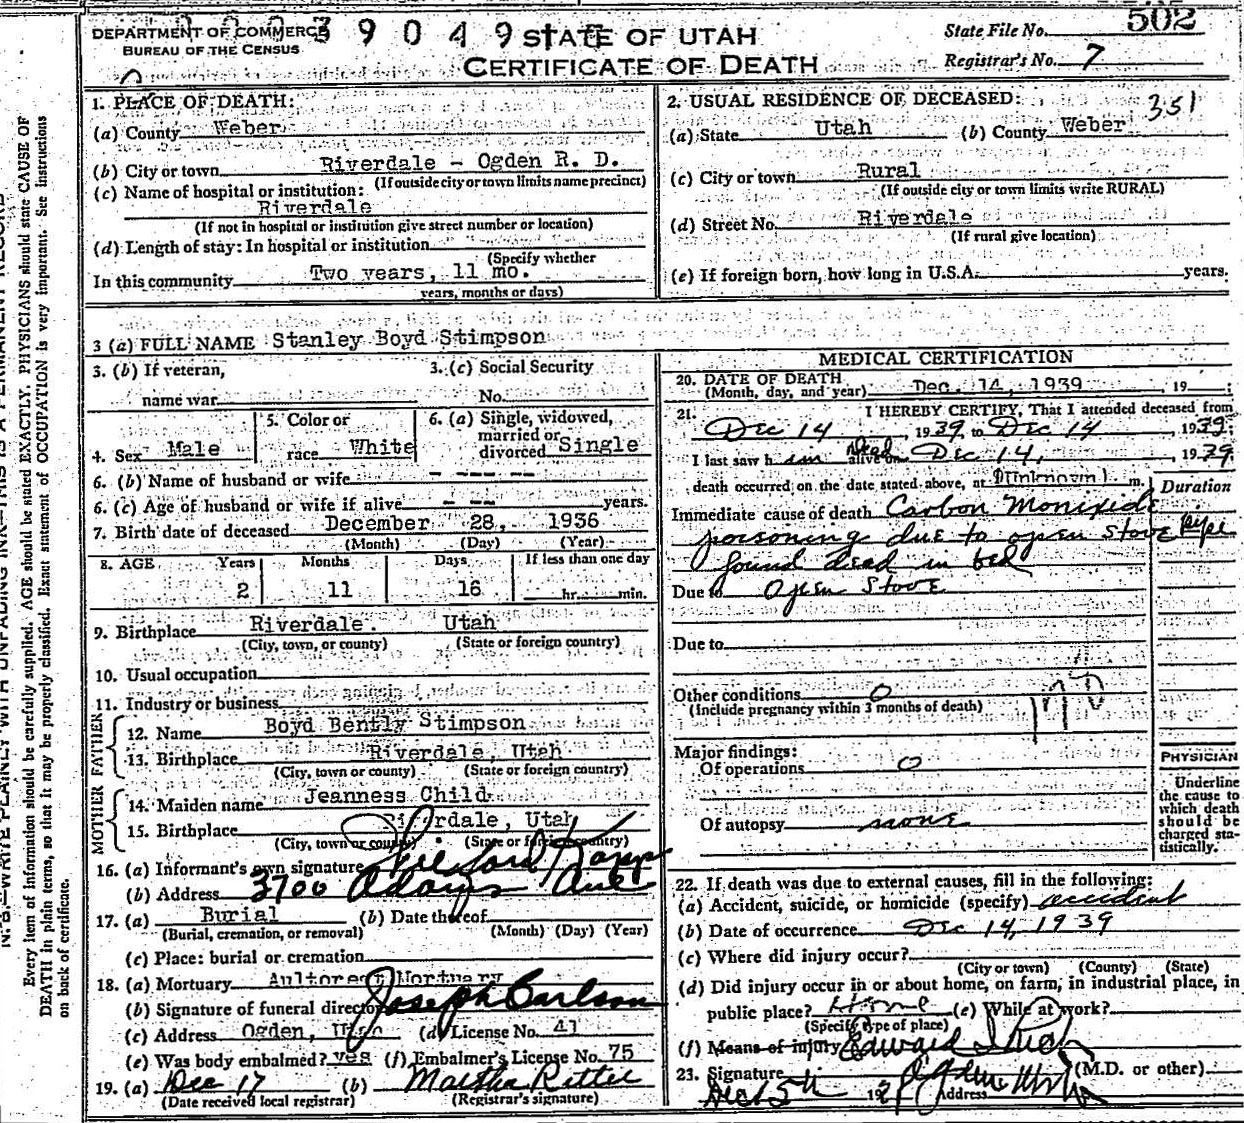 DEPARTMENT OF COMMERCE 39049 STATE OF UTAH State File No. 502
BUREAU OF THE CENSUS CERTIFICATE OF DEATH Registrar's No. 7
1. PLACE OF DEATH:
(a) County Weber
(b) City or town Riverdale - Ogden R. D.
(If outside city or town limits name precinct)
(c) Name of hospital or institution:
Riverdale
(If not in hospital or institution give street number or location)
(d) Length of stay: In hospital or institution
(Specify whether
In this community Two years, 11 mo.
years, months or days)
2. USUAL RESIDENCE OF DECEASED: 351
(a) State Utah (b) County Weber
(c) City or town Rural
(If outside city or town limits write RURAL)
(d) Street No. Riverdale
(If rural give location)
(e) If foreign born, how long in U.S.A. years.
3 (a) FULL NAME Stanley Boyd Stimpson
3. (b) If veteran, 3. (c) Social Security
name war No.
4. Sex Male 5. Color or race White 6. (a) Single, widowed, married or divorced Single
6. (b) Name of husband or wife - --- -- --
6. (c) Age of husband or wife if alive - -- -- years.
7. Birth date of deceased December 28, 1936
(Month) (Day) (Year)
8. AGE Years Months Days If less than one day
2 11 16 hr. min.
9. Birthplace Riverdale. Utah
(City, town, or county) (State or foreign country)
10. Usual occupation
11. Industry or business
FATHER
12. Name Boyd Bently Stimpson
13. Birthplace Riverdale, Utah
(City, town or county) (State or foreign country)
MOTHER
14. Maiden name Jeanness Child
15. Birthplace Riverdale, Utah
(City, town or county) (State or foreign country)
16. (a) Informant's own signature
(b) Address 3700 Adams Ave
17. (a) Burial (b) Date thereof
(Burial, cremation, or removal) (Month) (Day) (Year)
(c) Place: burial or cremation
18. (a) Mortuary Aultorest Mortuary
(b) Signature of funeral director Joseph Carlson
(c) Address Ogden, Utah (d) License No. 41
(e) Was body embalmed? yes (f) Embalmer's License No. 75
19. (a) Dec 17 (b) Martha Ritter
(Date received local registrar) (Registrar's signature)
MEDICAL CERTIFICATION
20. DATE OF DEATH
(Month, day, and year) Dec. 14, 1939, 19
21. I HEREBY CERTIFY, That I attended deceased from
Dec 14, 1939, to Dec 14, 1939;
I last saw him alive on Dead Dec 14, 1939.
death occurred on the date stated above, at (Unknown) m. Duration
Immediate cause of death Carbon Monixide
poisoning due to open stove pipe
found dead in bed
Due to Open Stove
Due to
Other conditions 0
(Include pregnancy within 3 months of death)
Major findings:
Of operations 0
Of autopsy none
PHYSICIAN
Underline
the cause to
which death
should be
charged sta-
tistically.
22. If death was due to external causes, fill in the following:
(a) Accident, suicide, or homicide (specify) accident
(b) Date of occurrence Dec 14, 1939
(c) Where did injury occur?
(City or town) (County) (State)
(d) Did injury occur in or about home, on farm, in industrial place, in
public place? Home (e) While at work?
(Specify type of place)
(f) Means of injury Edward
23. Signature (M.D. or other)
Dec 15th 19 Address Ogden
Every item of information should be carefully supplied. AGE should be stated EXACTLY. PHYSICIANS should state CAUSE OF
DEATH in plain terms, so that it may be properly classified. Exact statement of OCCUPATION is very important. See instructions
on back of certificate.